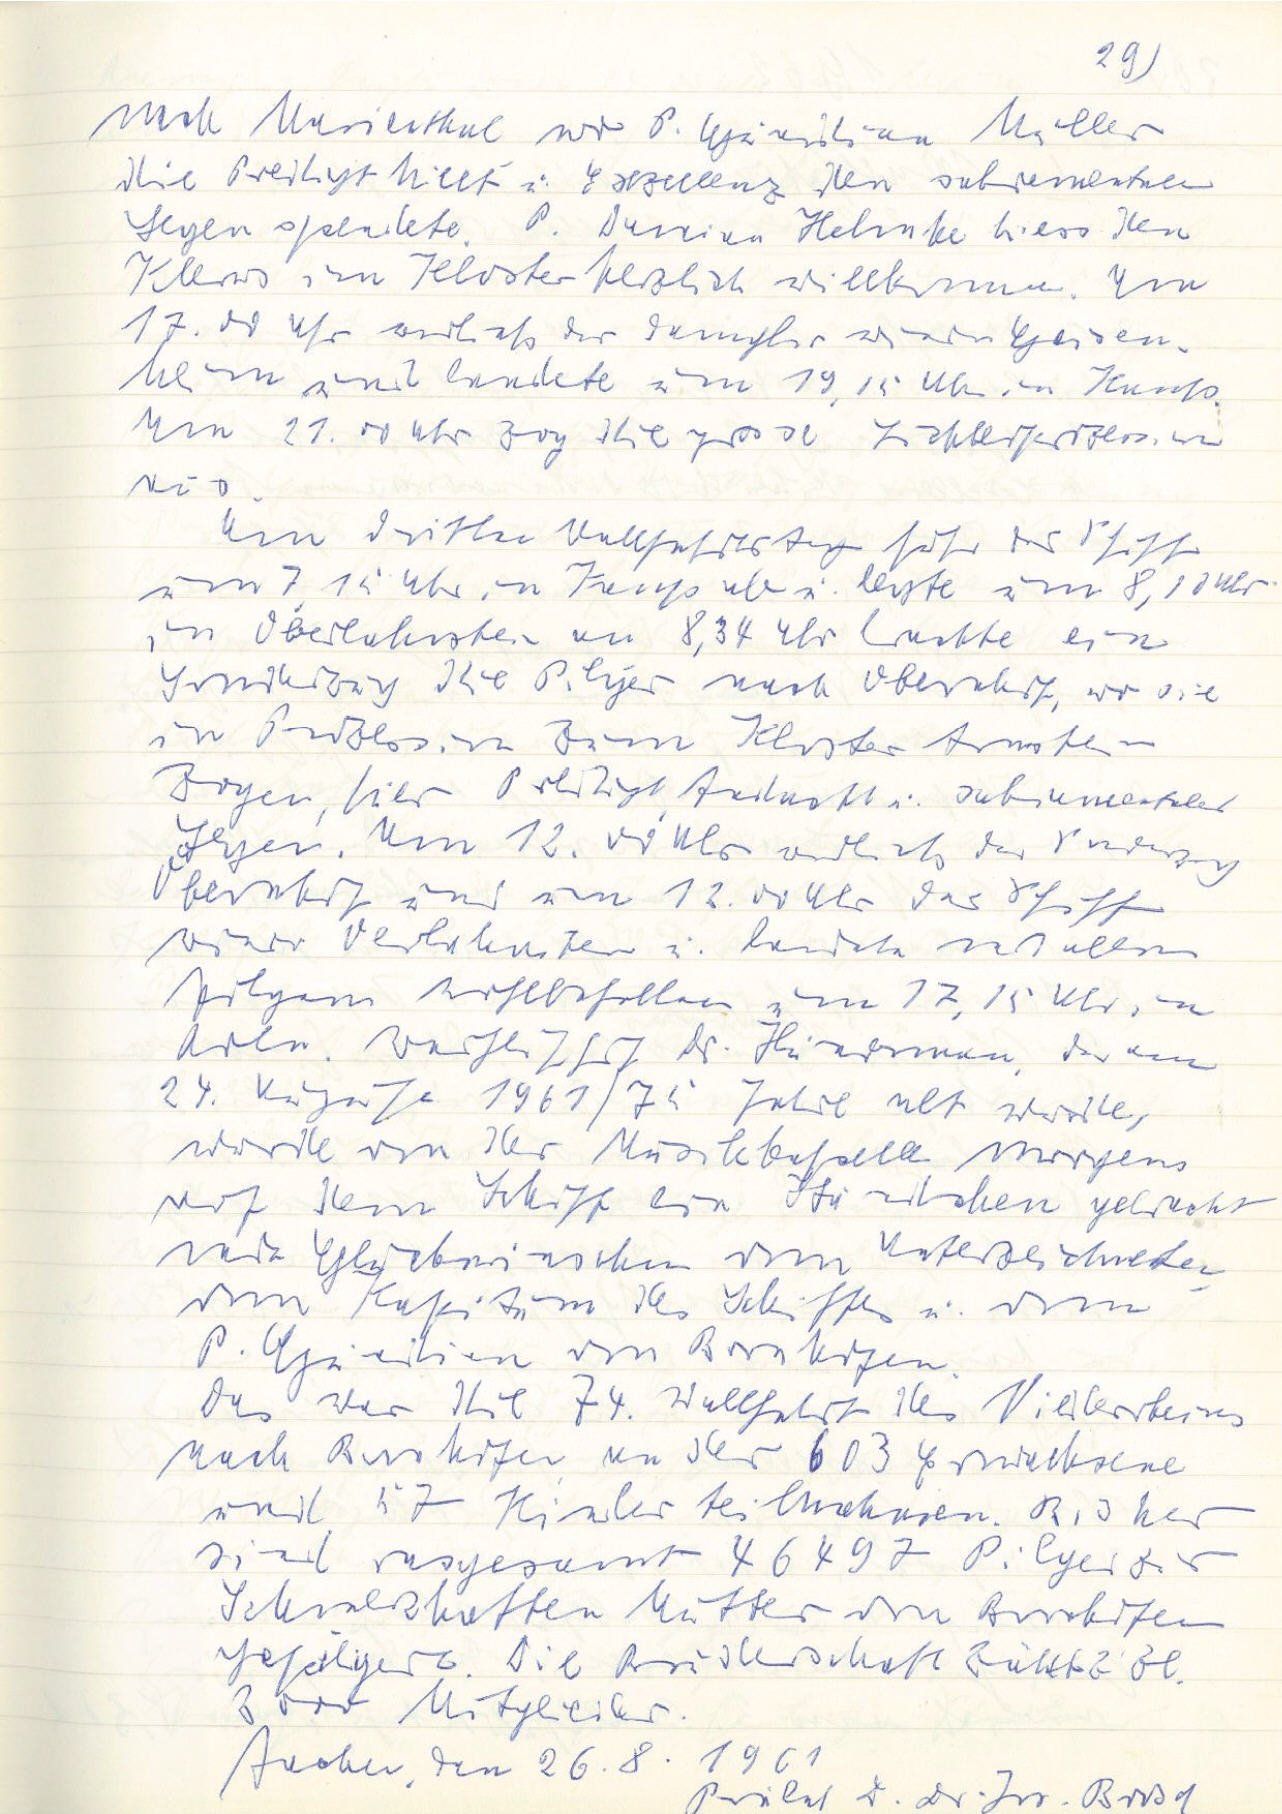 29)
nach Marienthal wo P. Müller
die Predigt hielt u. Exzellenz den sakramentalen
Segen spendete. P. Damian Helmke hiess den
Klerus im Kloster herzlich willkommen. Um
17.00 Uhr verliess der Dampfer wieder Geisen-
heim und landete um 19,15 Uhr in Kamp.
Um 21.00 Uhr zog die grosse Lichterprozession
aus.
Am dritten Wallfahrtstag fuhr das Schiff
um 7,15 Uhr in Kamp ab u. legte um 8,10 Uhr
in Oberlahnstein an 8,34 Uhr brachte ein
Sonderzug die Pilger nach Obernhof, wo sie
in Prozession zum Kloster Arnstein
zogen, hier Predigt, Andacht u. sakramentaler
Segen. Um 12.00 Uhr verliess der Sonderzug
Obernhof und um 12.00 Uhr das Schiff
wieder Oberlahnstein u. landete mit allen
Pilgern wohlbehalten um 17,15 Uhr in
Köln. Dr. Hünermann, der am
24. August 1961 / 75 Jahre alt wurde,
wurde von der Musikkapelle morgens
auf dem Schiff ein Ständchen gebracht
mit Glückwünschen vom Unterzeichneten,
vom Kapitän des Schiffes u. vom
P. von Bornhofen.
Das war die 74. Wallfahrt des Niederrheins
nach Bornhofen, an der 603 Erwachsene
und 57 Kinder teilnahmen. Bisher
sind insgesamt 46497 Pilger zur
Schmerzhaften Mutter von Bornhofen
gepilgert. Die Bruderschaft zählt z. Zt.
Mitglieder.
Aachen, den 26.8.1961
Prälat D. Dr. Jos. Brosch